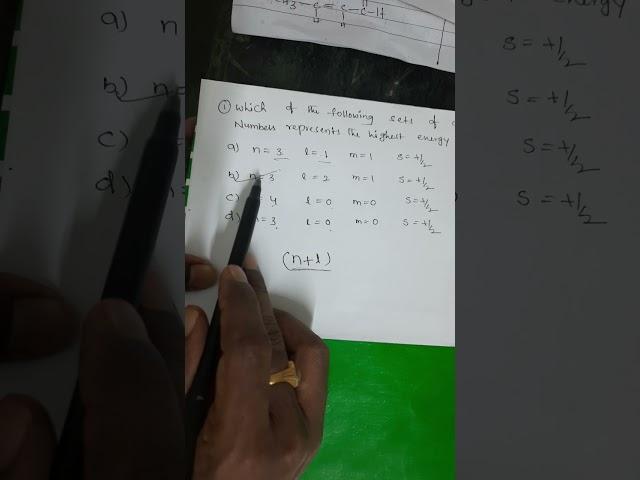 CH3-C=C-C-H
H
① Which of the following sets of
Numbers represents the highest energy
a) n=3 l=1 m=1 s=+1/2
b) n=3 l=2 m=1 s=+1/2
c) 4 l=0 m=0 s=+1/2
d) n=3 l=0 m=0 s=+1/2
(n+l)
a) n
b) n=
c)
d)
energy
s=+1/2
s=+1/2
s=+1/2
s=+1/2